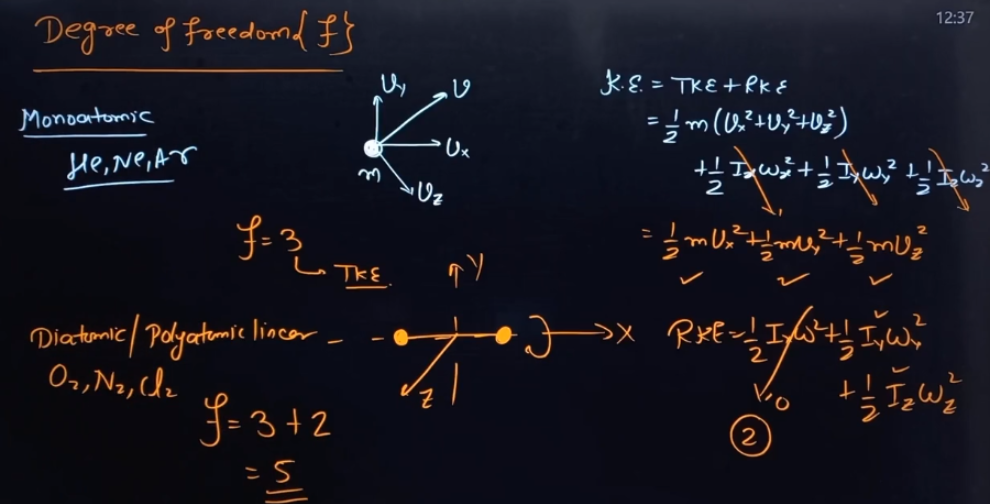 12:37
Degree of freedom{f}
Monoatomic
He, Ne, Ar
Vy
V
Vx
m
Vz
K.E. = TKE + RKE
= 1/2 m (Vx² + Vy² + Vz²)
+ 1/2 Ix ωx² + 1/2 Iy ωy² + 1/2 Iz ωz²
= 1/2 m Vx² + 1/2 m Vy² + 1/2 m Vz²
f = 3
TKE.
Y
X
Z
Diatomic/Polyatomic linear
O₂, N₂, Cl₂
f = 3 + 2
= 5
RKE = 1/2 Ix ω² + 1/2 Iy ωy²
+ 1/2 Iz ωz²
0
2